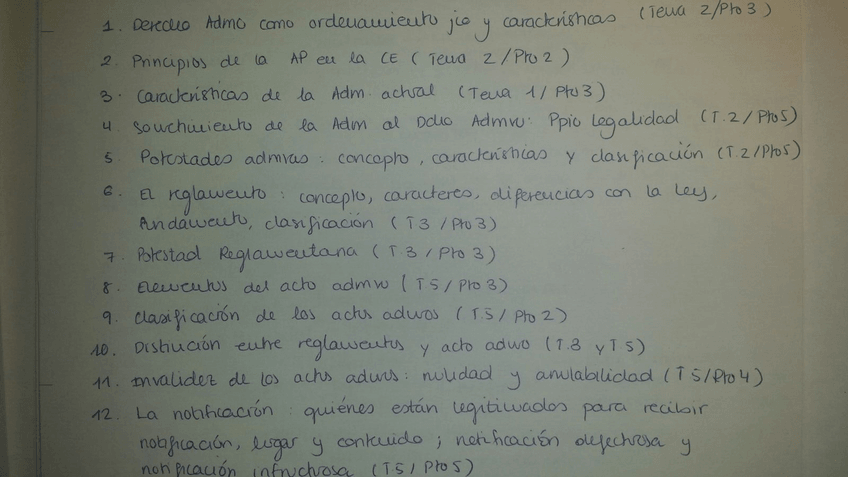 1. Derecho Admo como ordenamiento jco y características (Tema 2/Pto 3)
2. Principios de la AP en la CE (Tema 2/Pto 2)
3. Características de la Adm. actual (Tema 1/Pto 3)
4 Sometimiento de la Adm al Dcho Admvo: Ppio legalidad (T.2/Pto5)
5. Potestades admvas: concepto, características y clasificación (T.2/Pto5)
6. El reglamento: concepto, caracteres, diferencias con la ley,
fundamento, clasificación (T3/Pto 3)
7. Potestad Reglamentaria (T.3/Pto 3)
8. Elementos del acto admvo (T5/Pto 3)
9. Clasificación de los actos admvos (T.5/Pto 2)
10. Distinción entre reglamentos y acto admvo (T.3 y T5)
11. Invalidez de los actos admvos: nulidad y anulabilidad (T5/Pto4)
12. La notificación: quiénes están legitimados para recibir
notificación, lugar y contenido; notificación defectuosa y
notificación infructuosa (T5/Pto5)